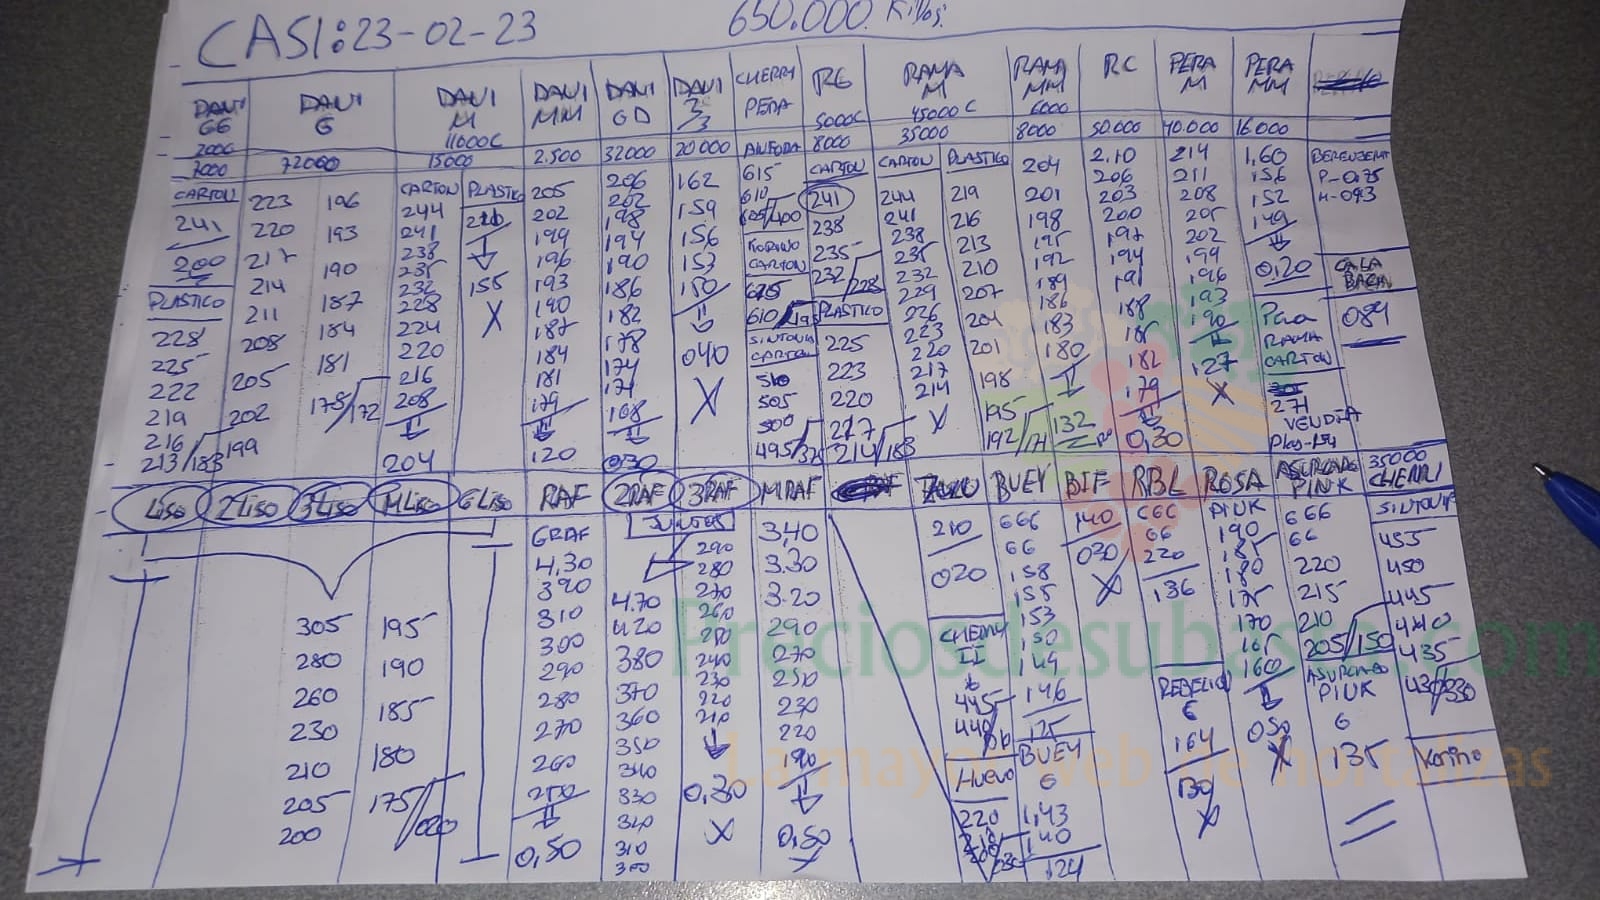 CASI: 23-02-23
650.000 Killos:
DANI GG
DANI G
DANI M
DANI MM
DANI GD
DANI 3/3
CHERRY PERA
RG
RAMA M
RAMA MM
RC
PERA M
PERA MM
11000C
5000C
45000C
6000
7000
72000
15000
2.500
32000
20.000
ANFORA
8000
35000
8000
50.000
40.000
16.000
CARTON
241
200
PLASTICO
228
225
222
219
216
213/183
223
220
217
214
211
208
205
202
199
196
193
190
187
184
181
178/172
CARTON
244
241
238
235
232
228
224
220
216
208
204
PLASTICO
155
X
205
202
199
196
193
190
187
184
181
179
120
206
202
198
194
190
186
182
178
174
171
168
030
162
159
156
153
150
040
X
615
610
KORINO
CARTON
610
SINTONIA
CARTON
510
505
500
495
CARTON
241
238
235
232/228
PLASTICO
225
223
220
217
214/183
CARTON
244
241
238
235
232
229
226
223
220
217
214
X
PLASTICO
219
216
213
210
207
204
201
198
195
192/171
204
201
198
195
192
189
186
183
180
132
2.10
206
203
200
197
194
191
188
185
182
179
0,30
214
211
208
205
202
199
196
193
190
127
X
1,60
156
152
149
0,20
Pera
RAMA
CARTON
271
VENDIA
BERENJENA
P-0,75
CALA
BACIN
084
LISO
2 LISO
3 LISO
M LISO
G LISO
RAF
2RAF
3RAF
MRAF
BUEY
BIF
RBL
ROSA
ASURCADO PINK
35000 CHERRI
305
280
260
230
210
205
200
195
190
185
180
175/020
GRAF
4.30
390
310
300
290
280
270
260
250
0,50
JUNTOS
4.70
420
380
370
360
350
340
330
320
310
300
290
280
270
260
250
240
230
220
210
0,30
X
3.40
3.30
3.20
290
270
250
230
220
190
0,50
210
020
CHERRY
445
HUEVO
220
666
66
158
155
153
150
149
146
125
BUEY
G
1,43
140
124
140
020
X
666
66
220
136
REBELION
G
164
130
X
PINK
190
185
180
175
170
165
160
050
X
666
66
220
215
210
205/150
ASURCADO
PINK
G
135
SINTONIA
455
450
445
440
435
430/330
Korino
Preciosdesubasta.com
La mayor web de hortalizas